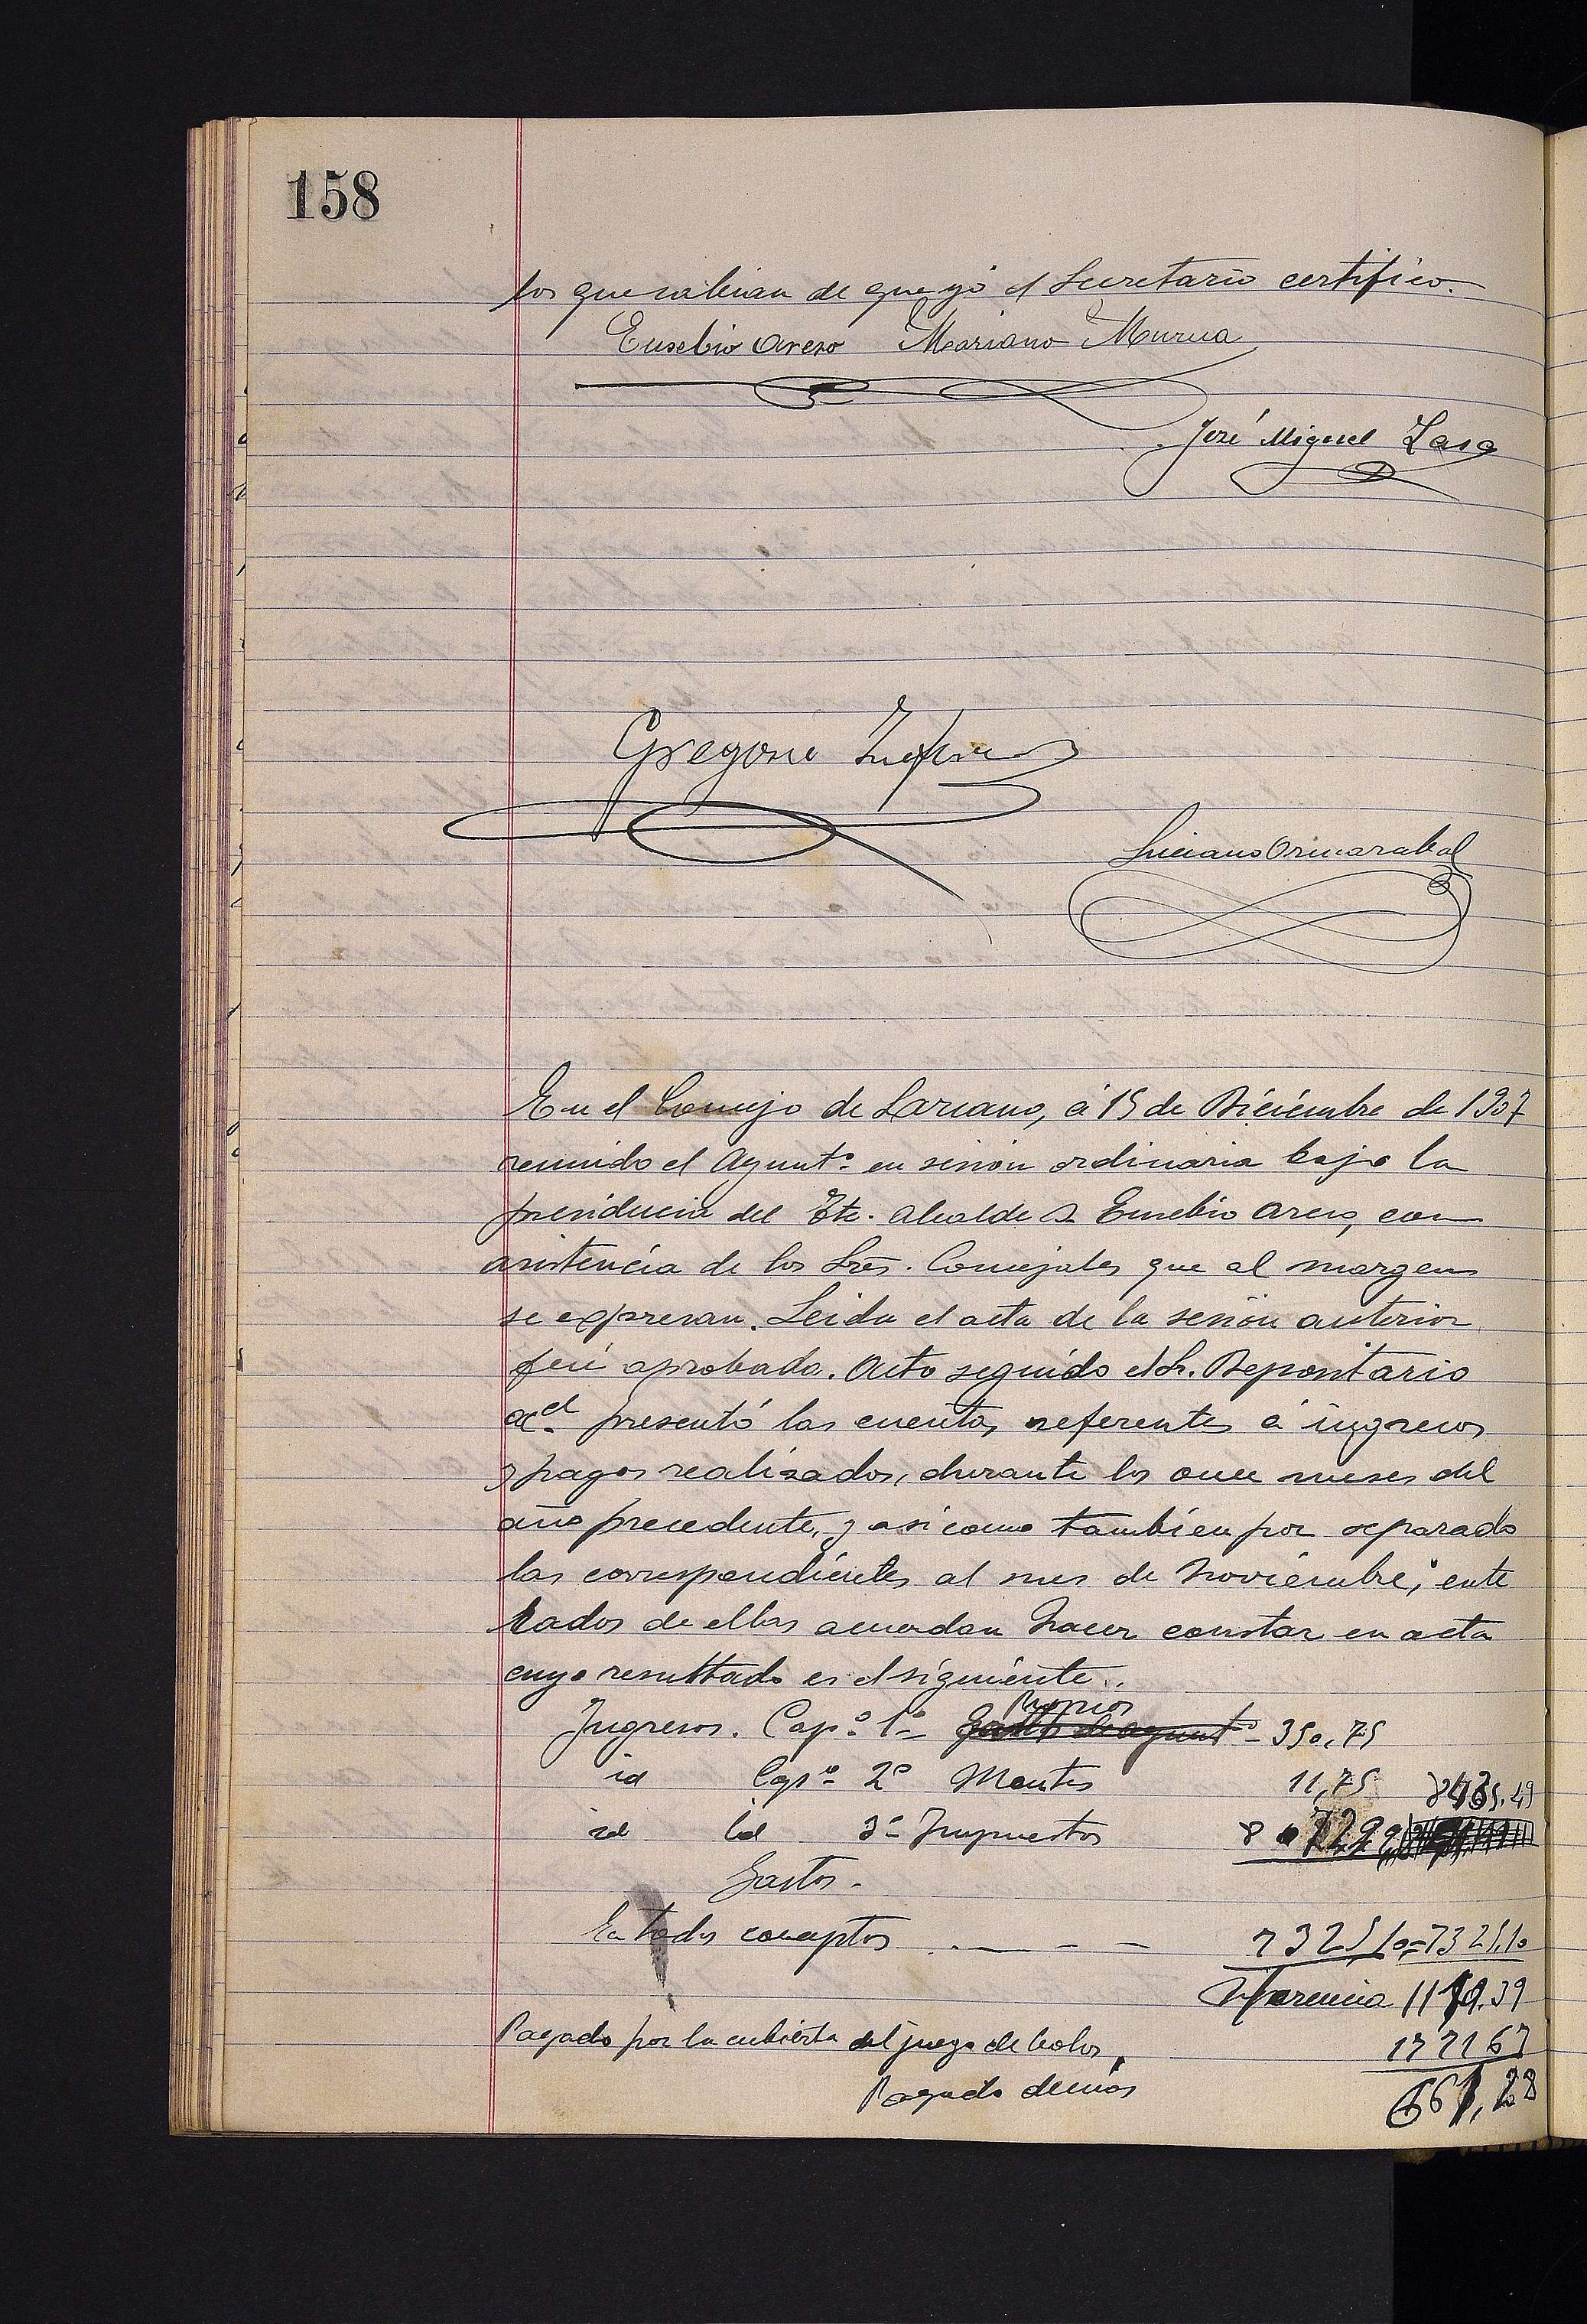 158
los que sabian de que yo el Secretario certifico.
Eusebio Areso Mariano Murua
José Miguel Lasa
Gregorio
Luciano Ormazabal
En el Concejo de Lazcano, á 15 de Diciembre de 1907
reunido el Ayuntº en sesion ordinaria bajo la
presidencia del Tte. Alcalde D. Eusebio Areso, con
asistencia de los Sres. Concejales que al margen
se expresan. Leida el acta de la sesion anterior
fué aprobada. Acto seguido el Sr. Depositario
presentó las cuentas referentes á ingresos
y pagos realizados, durante los once meses del
año precedente, y asi como tambien por separado
las correspondientes al mes de Noviembre, ente
rados de ellas acuerdan hacer constar en acta
cuyo resultado es el siguiente.
Propios
Ingresos. Capº 1º 350,75
id Capº 2º Montes 11,75 8435.49
id id 3º Impuestos
Gastos.
En todos conceptos 7325,10=7325,10
Diferencia 1110.39
Pagado por la cubierta del juego de bolos, 1771 67
Pagado demás 661,28